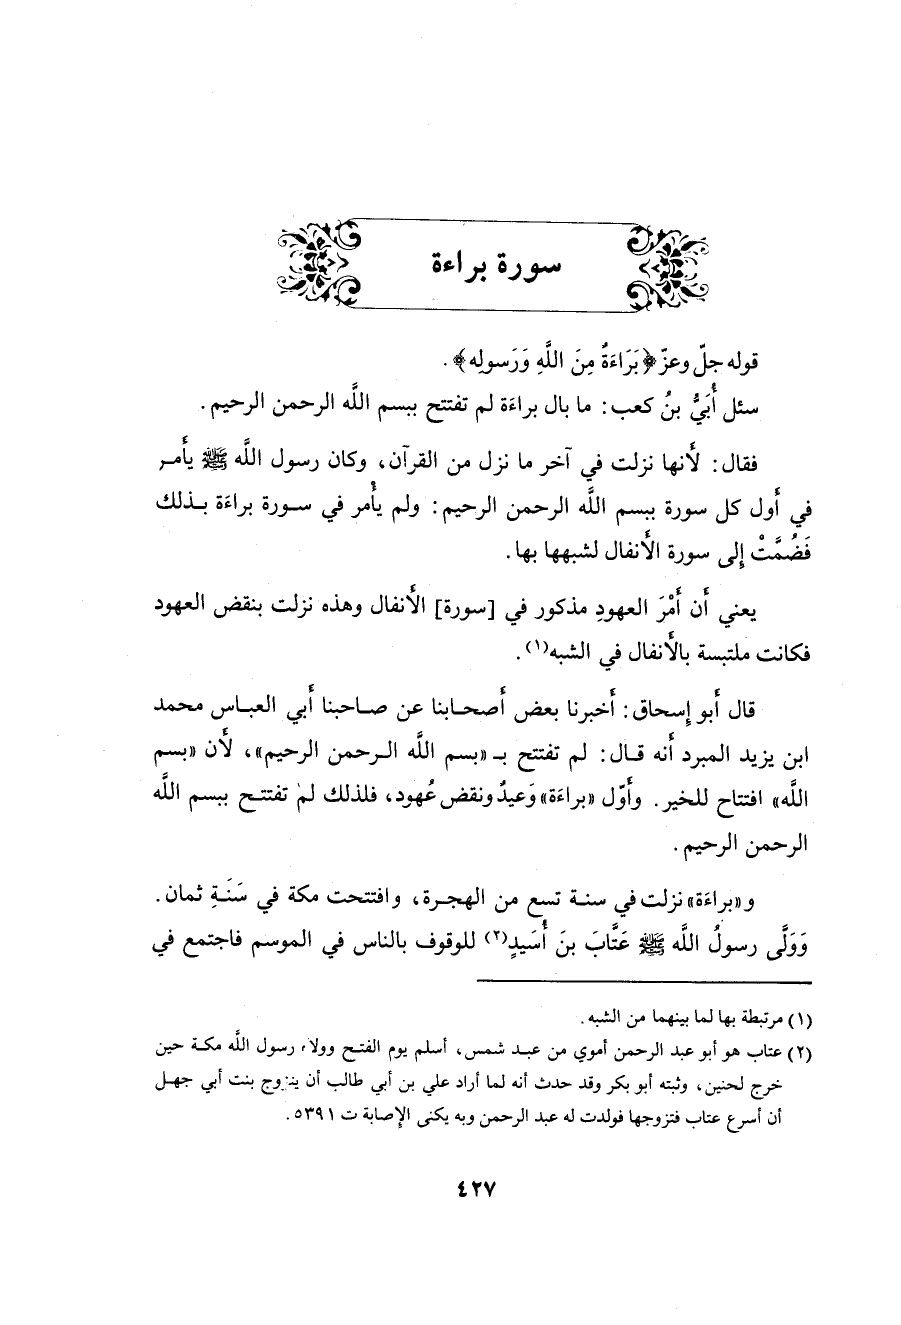 سورة براءة
قوله جلّ وعزّ ﴿بَرَاءَةٌ مِنَ اللَّهِ وَرَسولِه﴾.
سئل أُبَيُّ بنُ كعب: ما بال براءَة لم تفتتح ببسم اللَّه الرحمن الرحيم.
فقال: لأَنها نزلت في آخر ما نزل من القرآن، وكان رسول اللَّه ﷺ يأْمر
في أَول كل سورة ببسم اللَّه الرحمن الرحيم: ولم يأْمر في سورة براءَة بذلك
فَضُمَّتْ إلى سورة الأَنفال لشبهها بها.
يعني أَن أَمْرَ العهودِ مذكور في [سورة] الأَنفال وهذه نزلت بنقض العهود
فكانت ملتبسة بالأَنفال في الشبه(١).
قال أَبو إسحاق: أَخبرنا بعض أَصحابنا عن صاحبنا أَبي العباس محمد
ابن يزيد المبرد أَنه قال: لم تفتتح بـ «بسم اللَّه الرحمن الرحيم»، لأَن «بسم
اللَّه» افتتاح للخير. وأَوّل «براءَة» وَعيدٌ ونقض عُهود، فلذلك لم تفتتح ببسم اللَّه
الرحمن الرحيم.
و«براءَة» نزلت في سنة تسع من الهجرة، وافتتحت مكة في سَنَةِ ثمان.
وَوَلَّى رسولُ اللَّه ﷺ عَتَّابَ بنَ أُسَيدٍ(٢) للوقوف بالناس في الموسم فاجتمع في
(١) مرتبطة بها لما بينهما من الشبه.
(٢) عتاب هو أبو عبد الرحمن أموي من عبد شمس، أسلم يوم الفتح وولاه رسول اللَّه مكة حين
خرج لحنين، وثبته أبو بكر وقد حدث أنه لما أراد علي بن أبي طالب أن يتزوج بنت أبي جهل
أن أسرع عتاب فتزوجها فولدت له عبد الرحمن وبه يكنى الإصابة ت ٥٣٩١.
٤٢٧